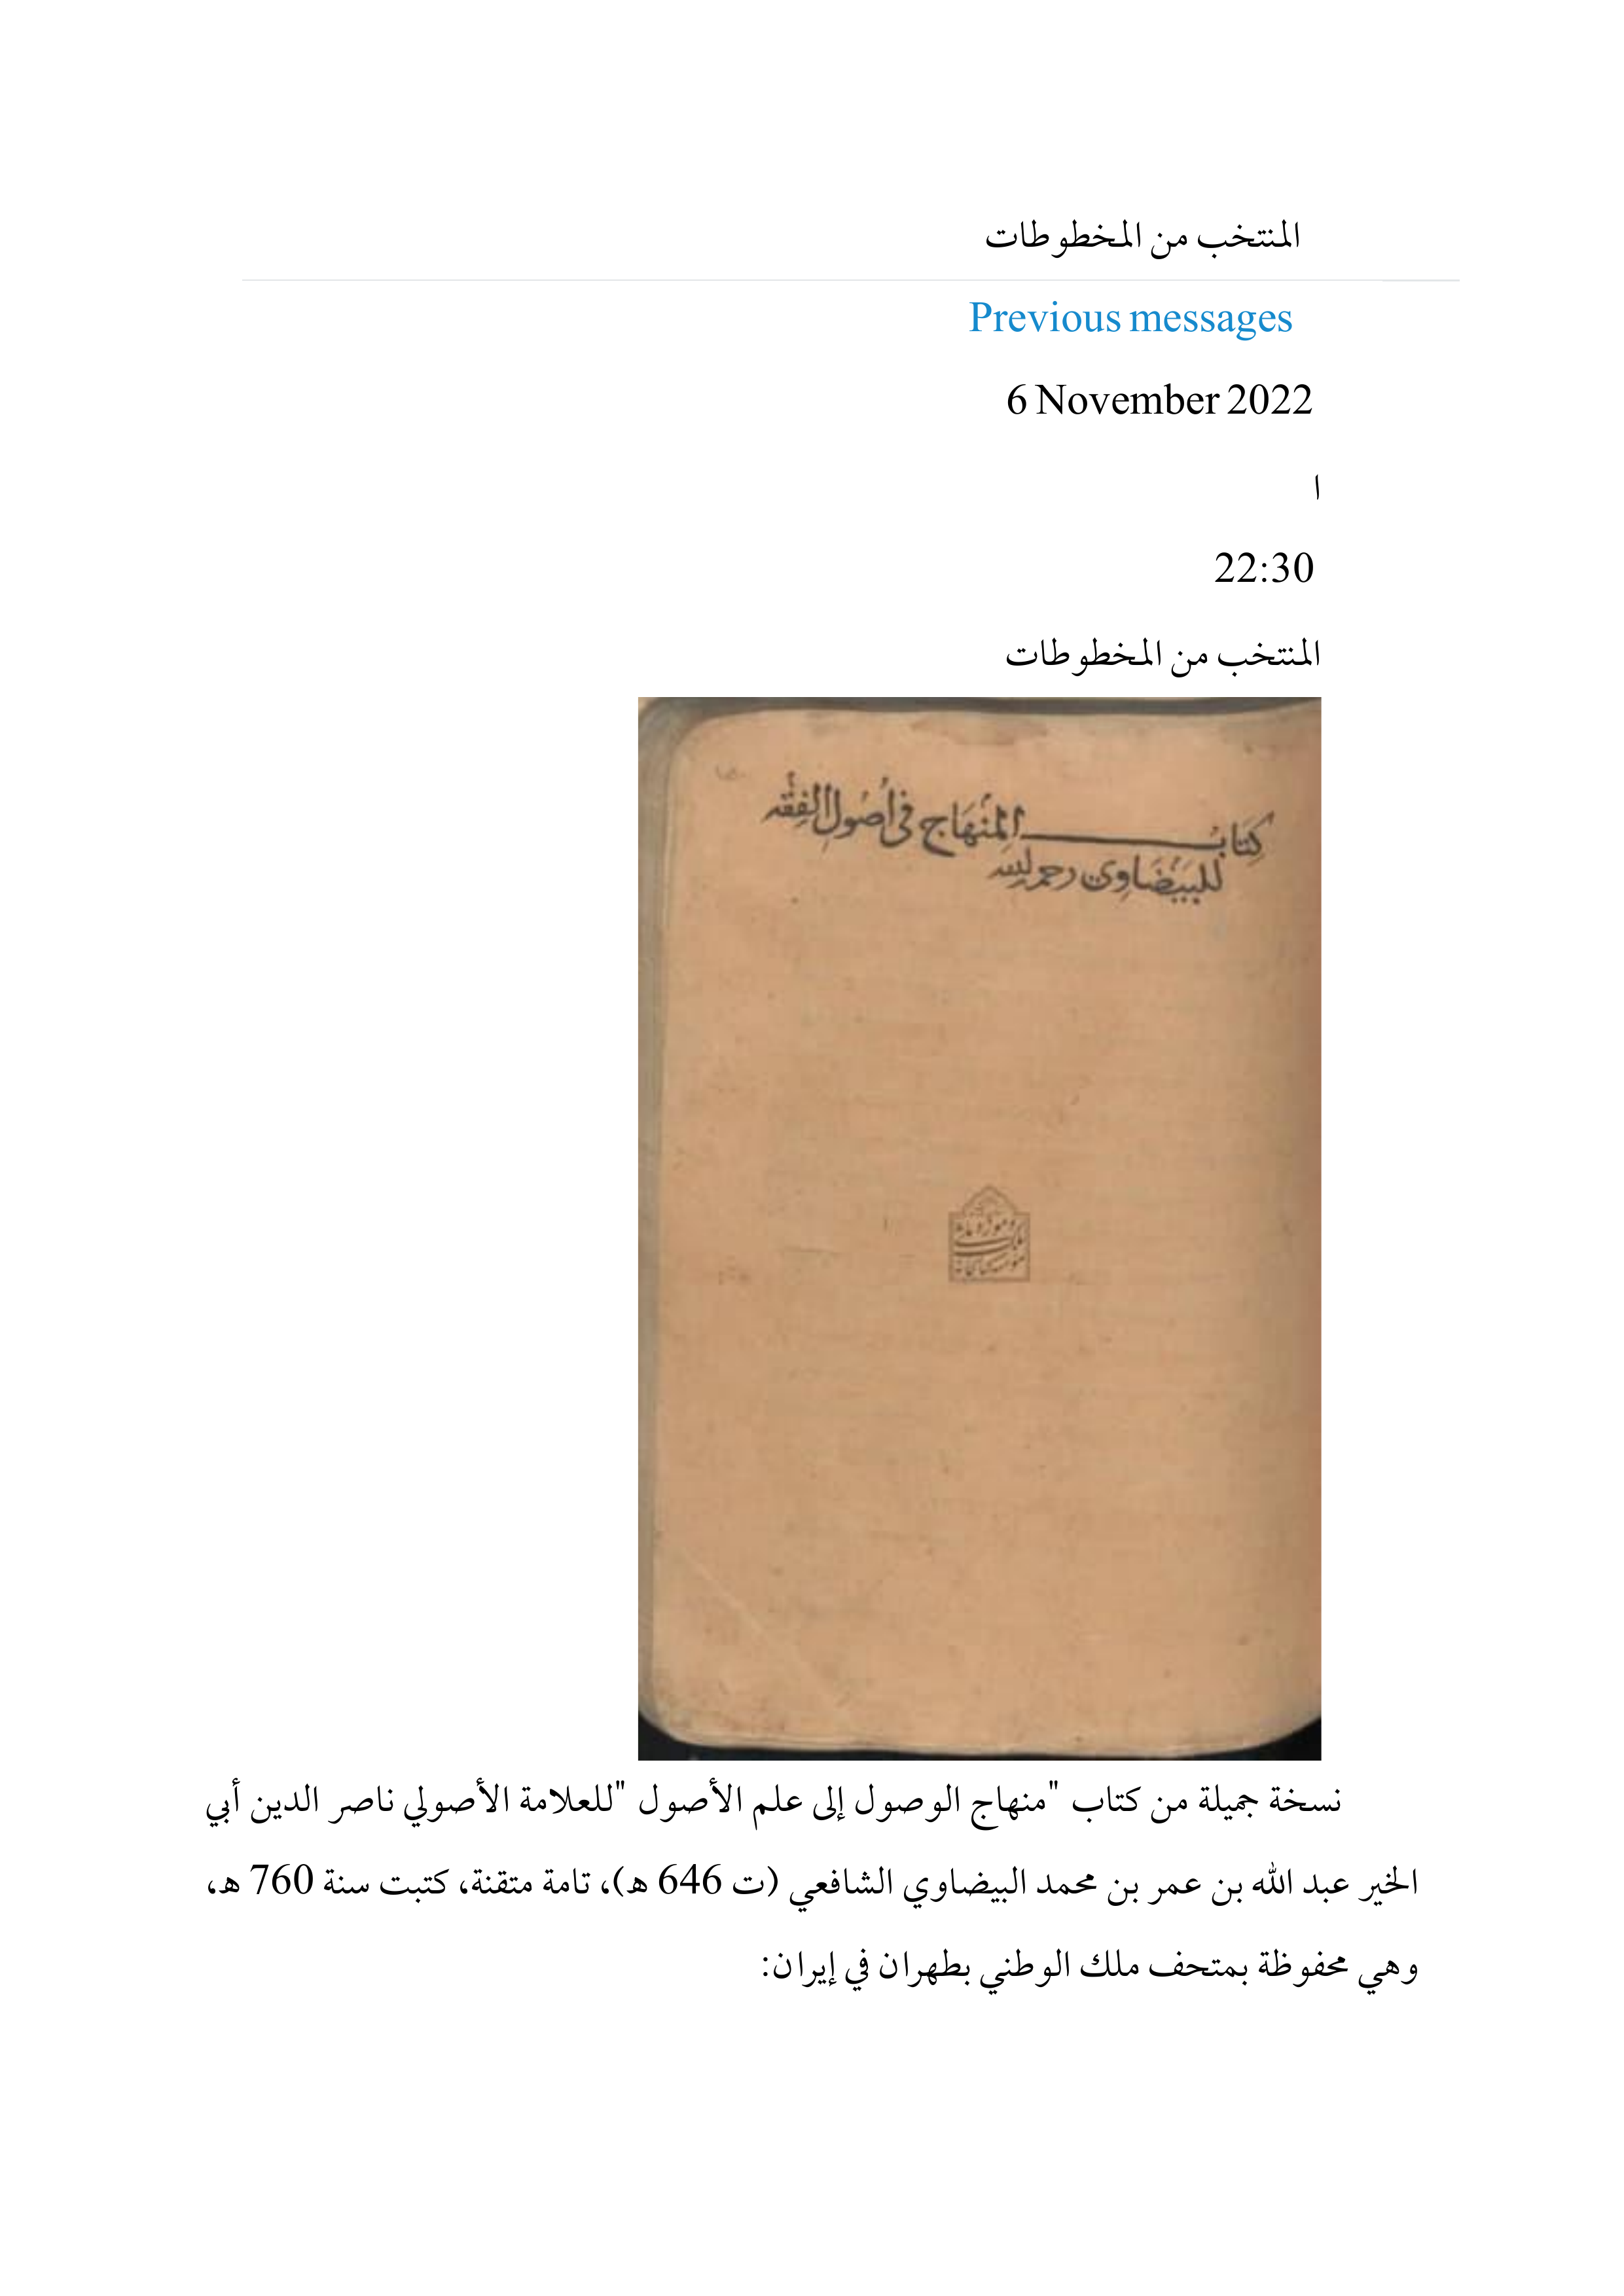 المنتخب من المخطوطات
Previous messages
6 November 2022
ا
22:30
المنتخب من المخطوطات
كتاب المنهاج في أصول الفقه
للبيضاوي رحمه الله
نسخة جميلة من كتاب "منهاج الوصول إلى علم الأصول "للعلامة الأصولي ناصر الدين أبي
الخير عبد الله بن عمر بن محمد البيضاوي الشافعي (ت 646 هـ)، تامة متقنة، كتبت سنة 760 هـ،
وهي محفوظة بمتحف ملك الوطني بطهران في إيران: